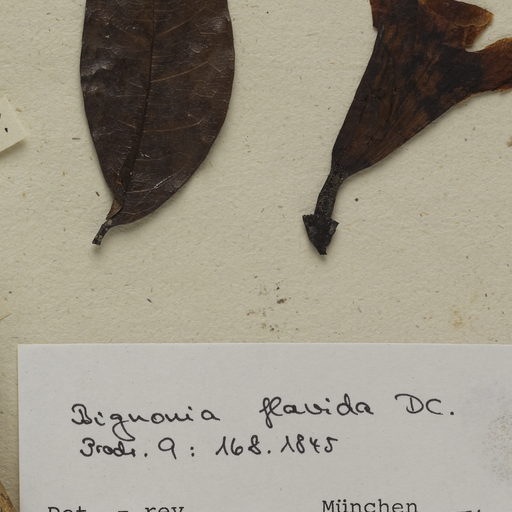 Bignonia flavida DC.
Prodr. 9: 168. 1845
Det. - rev. München